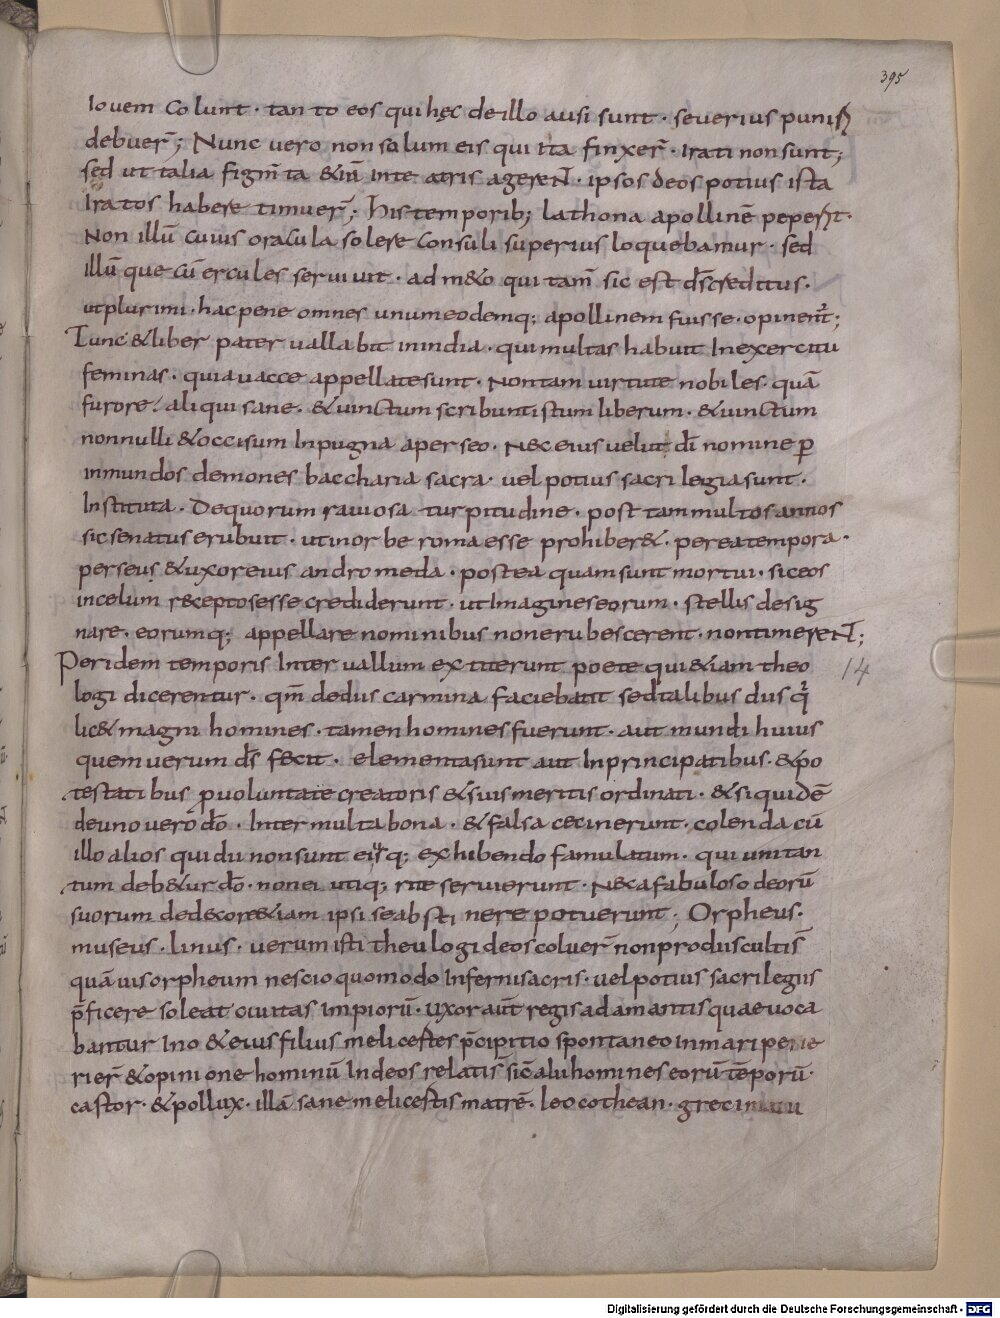 395
Iouem Colunt · tanto eos qui hęc de illo ausi sunt · seuerius punir̄
debuer̄; Nunc uero non solum eis qui ita finxer̄ · irati non sunt;
sed ut talia figm̄ta &iā inteatris agerent · ipsos deos potius ista
Iratos habere timuer̄; His temporib; lathona apollinē peperit·
Non illū cuius oracula solere Consuli superius loquebamur · sed
illū que cū ercules seruiuit · adm&o qui tam̄ sic est ds̄ creditus ·
ut plurimi · hac pene omnes unum eodemq; apollinem fuisse · opinent̄;
Tunc & liber pater uallabit in india · qui multas habuit In exercitu
feminas · quia uacce appellate sunt · Non tam uirtute nobiles · quā
furore / aliqui sane · & uinctum scribunt istum liberum · & uinctum
nonnulli & occisum In pugna aperseo · Nec eius uelut dī nomine p
inmundos demones baccharia sacra · uel potius sacrilegia sunt ·
Instituta · De quorum rauiosa turpitudine · post tam multos annos
sic senatus erubuit · ut in orbe roma esse prohiber& · per ea tempora ·
perseus & uxor eius andromeda · postea quam sunt mortui · sic eos
in celum receptos esse crediderunt · ut Imagines eorum · stellis desig
nare · eorumq; appellare nominibus non erubescerent · non timerent;
Per idem temporis Interuallum extiterunt poete qui &iam theo 14
logi dicerentur · qm̄ de dus carmina faciebant sed talibus dus q̄
lic& magni homines · tamen homines fuerunt · aut mundi huius
quem uerum ds̄ fecit · elementa sunt aut In principatibus · & po
testatibus p uoluntate creatoris & suis meritis ordinati · & si quidē
de uno uero dō · Inter multa bona · & falsa cecinerunt · colenda cū
illo alios qui dii non sunt eisq; exhibendo famulatum · qui uni tan
tum deb&ur dō · non ei utiq; rite seruierunt · Nec a fabuloso deorū
suorum dedecore &iam ipsi se abstinere potuerunt; Orpheus ·
museus · linus · uerum isti theulogi deos coluer̄ non pro dus cultis̄
quāuis orpheum nescio quomodo Infernis acris · uel potius sacrilegiis
p̄ficere soleat ciuitas impiorū · Uxor aut̄ regis adamantis quae uoca
bantur Ino & eius filius melicestes p̄cipitio spontaneo in mari perie
rier̄ & opinione hominū In deos relatis̄ sic̄ alii homines eorū tēporū·
castor · & pollux · illā sane melicestis matrē · leocothean · greci
Digitalisierung gefördert durch die Deutsche Forschungsgemeinschaft - DFG